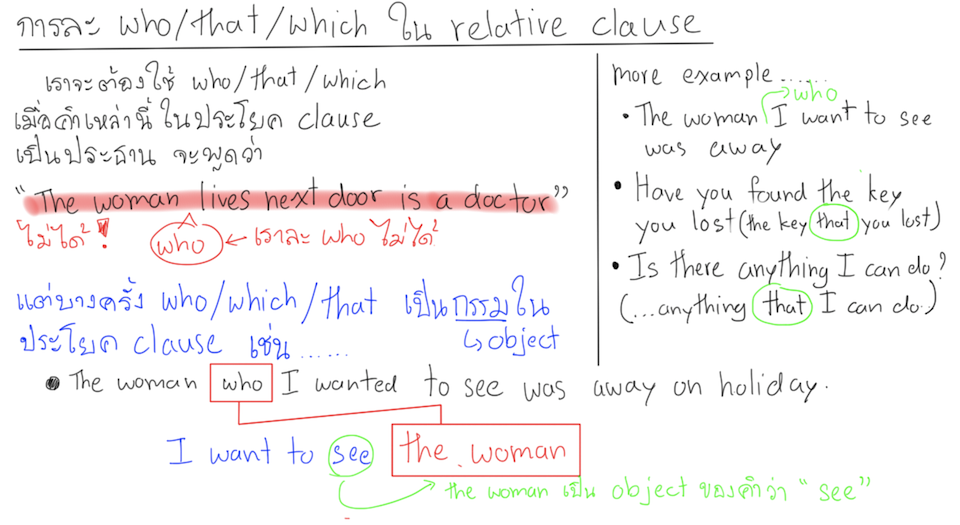 การละ who/that/which ใน relative clause
เราจะต้องใช้ who/that/which
เมื่อคำเหล่านี้ ในประโยค clause
เป็นประธาน จะพูดว่า
"The woman lives next door is a doctor"
ไม่ได้ !
who ← เราละ who ไม่ได้
แต่บางครั้ง who/which/that เป็นกรรมใน
ประโยค clause เช่น ......
↳ object
• The woman who I wanted to see was away on holiday.
I want to see the woman
the woman เป็น object ของคำว่า "see"
more example ......
who
• The woman I want to see
was away
• Have you found the key
you lost (the key that you lost)
• Is there anything I can do?
(...anything that I can do.)